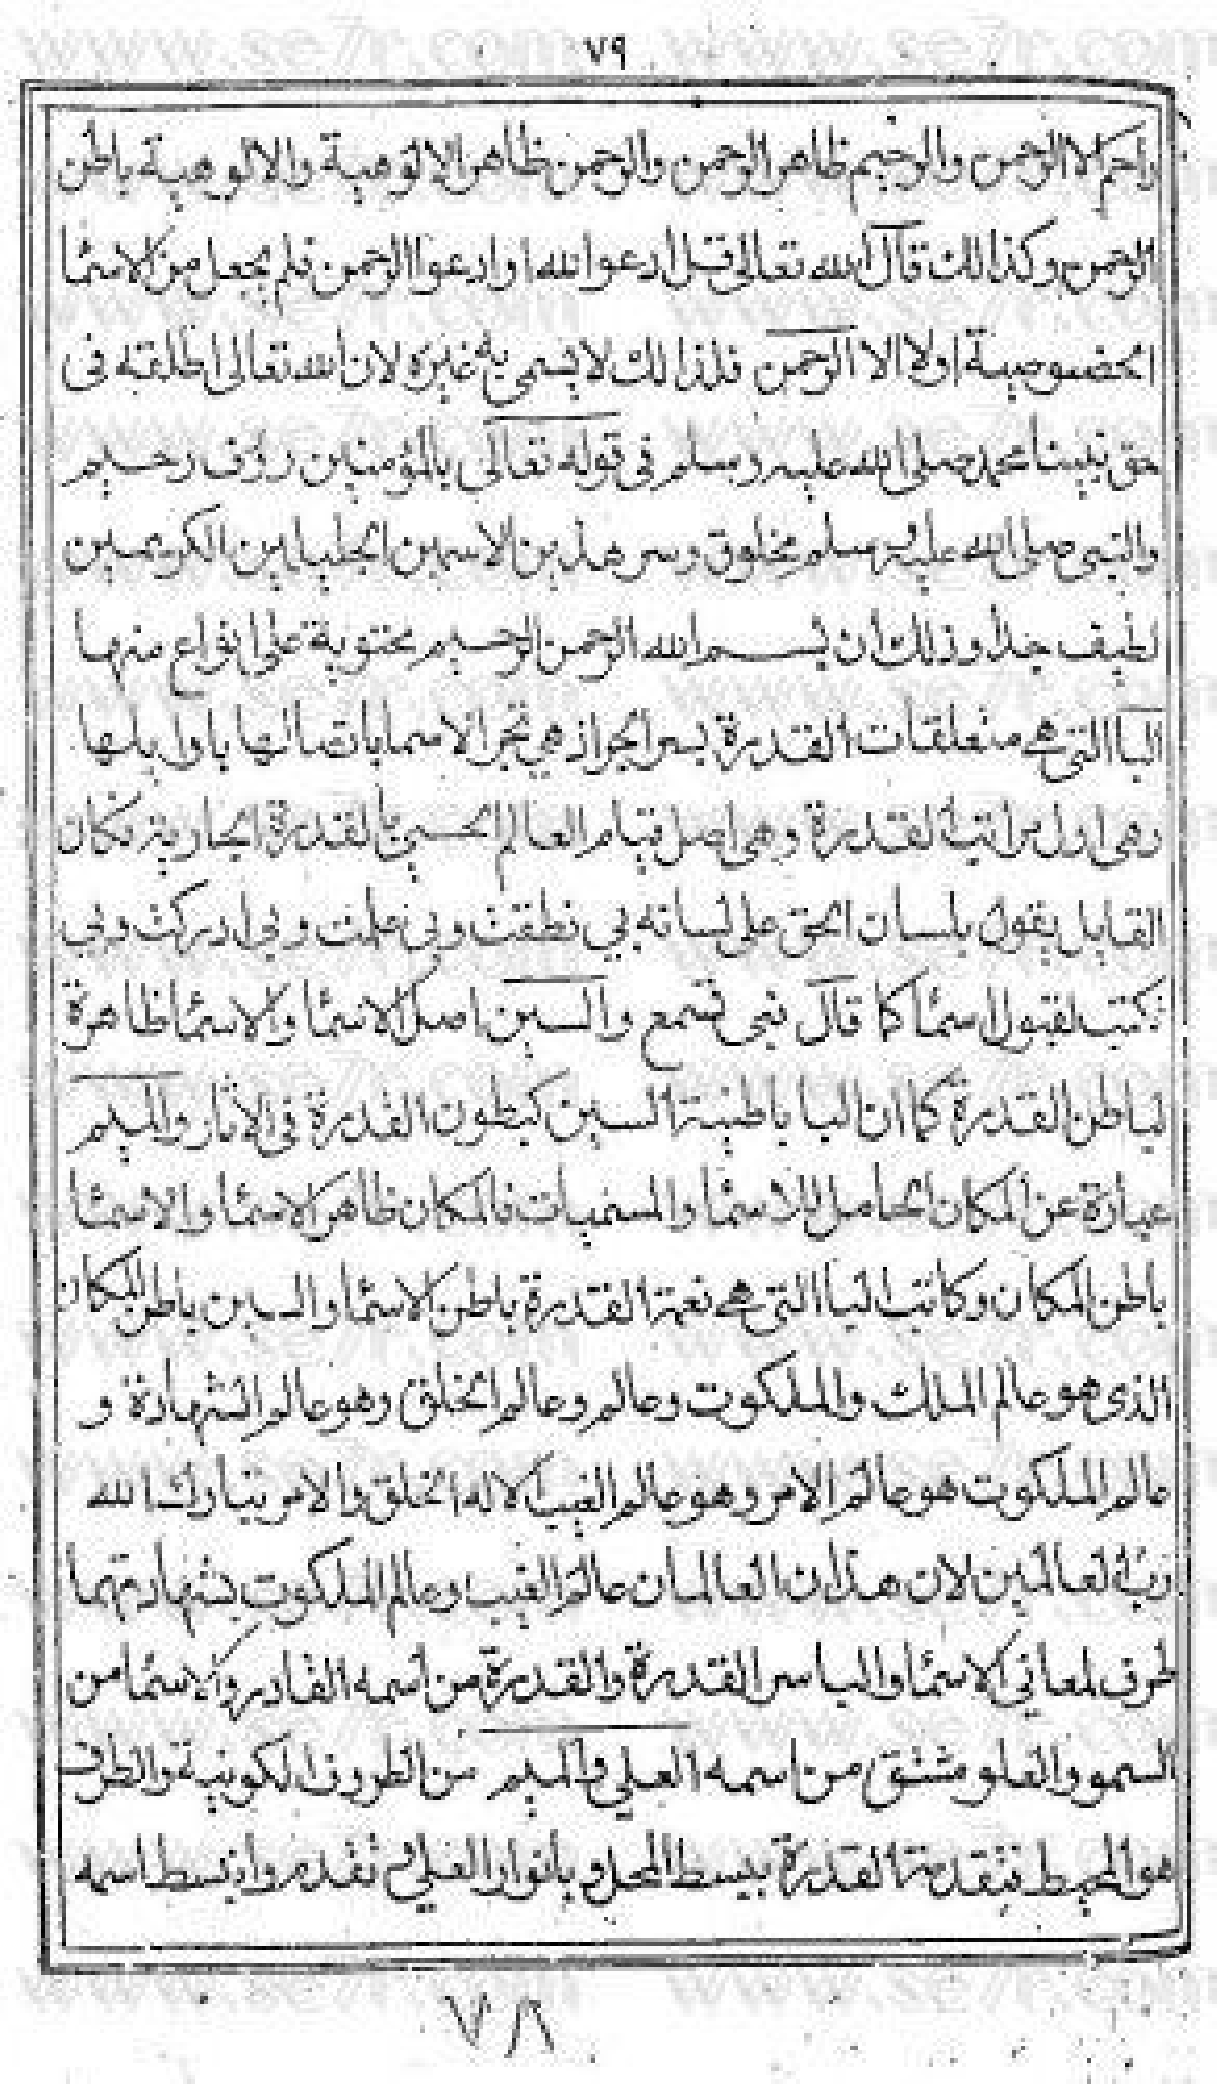 ٧٩
راحم الا الرحمن والرحيم ظاهر الرحمن والرحمن ظاهر الالوهية والالوهية باطن
الرحمن وكذالك قال الله تعالى قل ادعوا الله او ادعوا الرحمن فلم يجعل من الاسما
الخصوصية اولا الا الرحمن فلذالك لا يسمى به غيره لان الله تعالى اطلقته فى
حق نبينا محمد صلى الله عليه وسلم فى قوله تعالى بالمؤمنين رؤف رحيم
والنبى صلى الله عليه وسلم مخلوق وسر هذين الاسمين الجليلين الكريمين
لطيف جدا وذلك ان بسم الله الرحمن الرحيم محتوية على انواع منها
البا التى هى متعلقات القدرة بسر الجواز هي الاسما باول يلها
وهى اول مراتب القدرة وهى اصل قيام العالم الحسى القدرة الجارية فكان
القايل يقول بلسان الحق على لسانه بي نطقت وبى علمت وبى ادركت وبي
كتب لقبول اسما كما قال نبى تسمع والسين اصل الاسما والاسما ظاهرة
لباطن القدرة كما ان البا باطنية السين كبطون القدرة فى الاثار والميم
عبارة عن المكان الحامل للاسما والمسميات فالمكان ظاهر الاسما والاسما
باطن المكان وكانت البا التى هى نعمة القدرة باطن الاسما والسين باطن المكان
الذى هو عالم الملك والملكوت وعالم وعالم الخلق وهو عالم الشهادة و
عالم الملكوت هو عالم الامر وهو عالم الغيب الا له الخلق والامر تبارك الله
رب العالمين لان هذان العالمان عالم الغيب وعالم الملكوت بشهادتهما
ظرف لمعاني الاسما والبا سر القدرة والقدرة من اسمه القادر والاسما من
السمو والعلو مشتق من اسمه العلي والميم من الظروف الكونية والظرف
هو المحيط فتقدمت القدرة ببسط المحل وبانوار العلي تقدم وانبسط اسمه
www.se7r.com
٧٨